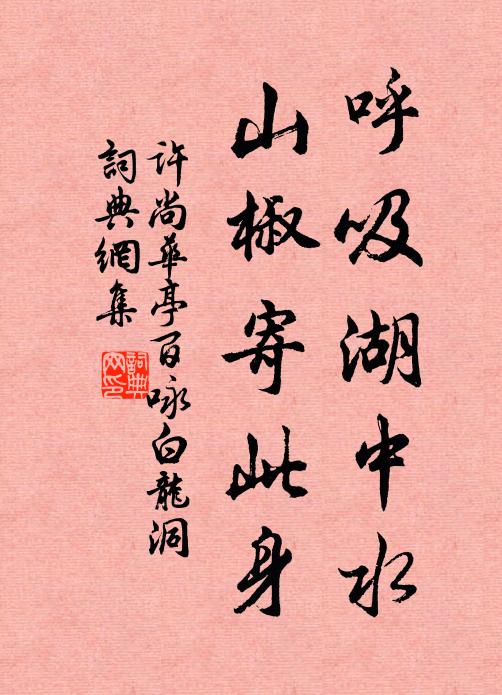 呼吸湖中水
山椒寄此身
許尚華亭百咏白龍洞
詞典網集
詞典
网印